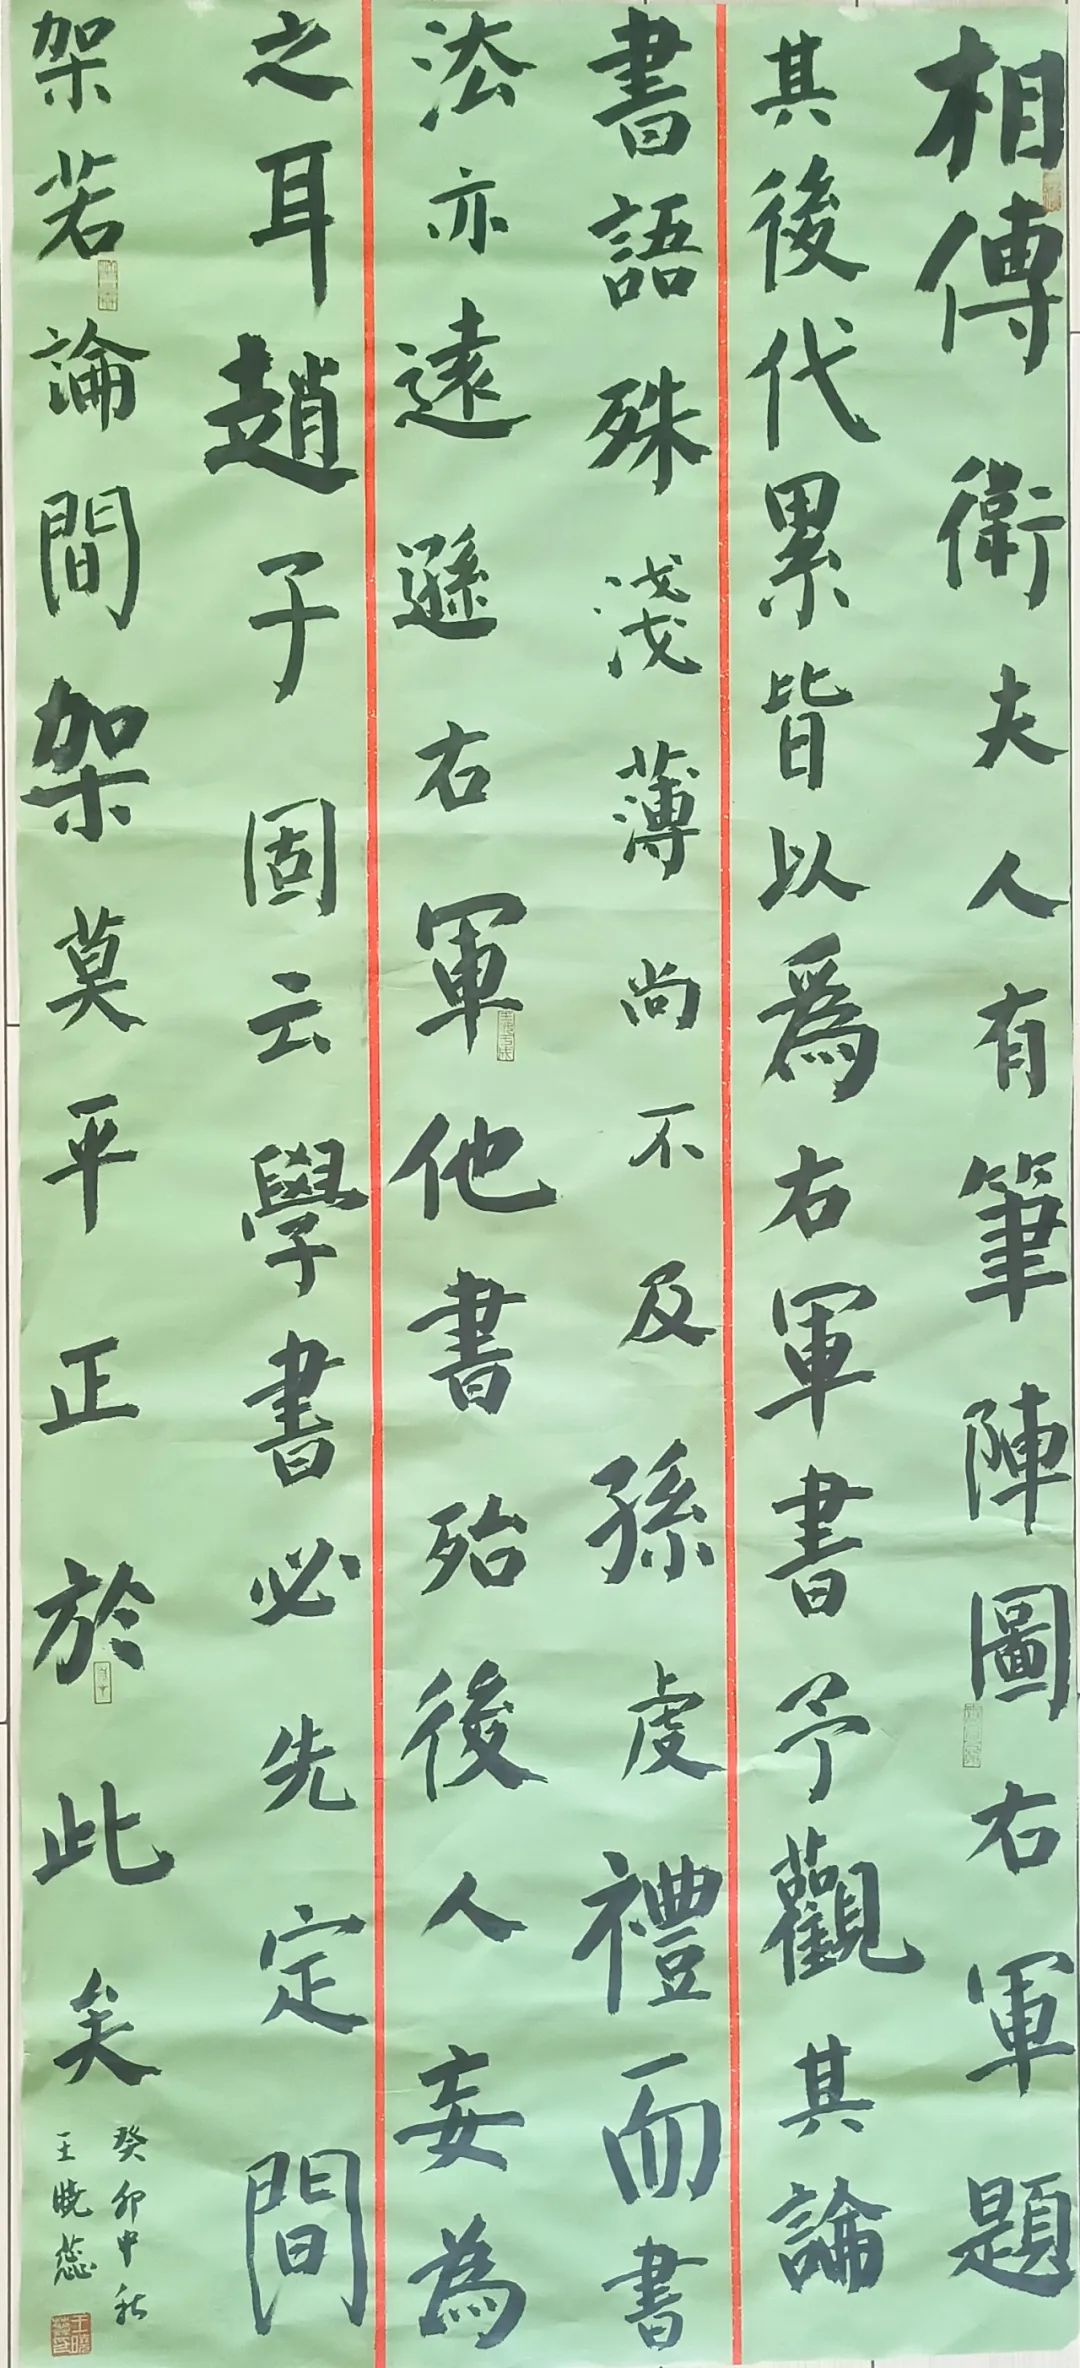 相傳衛夫人有筆陣圖右軍題
其後代累皆以爲右軍書予觀其論
書語殊淺薄尚不及孫虔禮而書
法亦遠遜右軍他書殆後人妄為
之耳趙子固云學書必先定間
架若論間架莫平正於此矣
癸卯中秋
王曉蕊